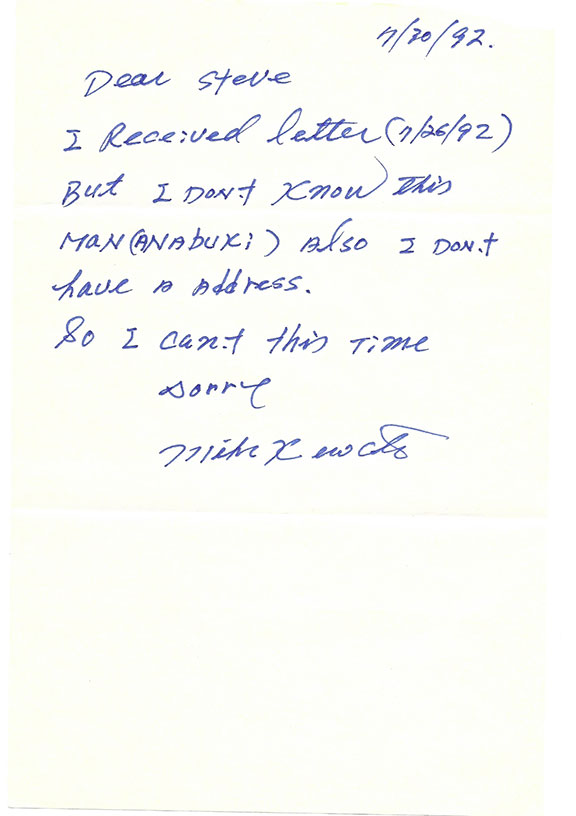 7/30/92.
Dear Steve
I Received letter (7/26/92)
But I Don't Know this
MaN (ANAbuKi) Also I Don't
have A Address.
So I can't this Time
Sorry